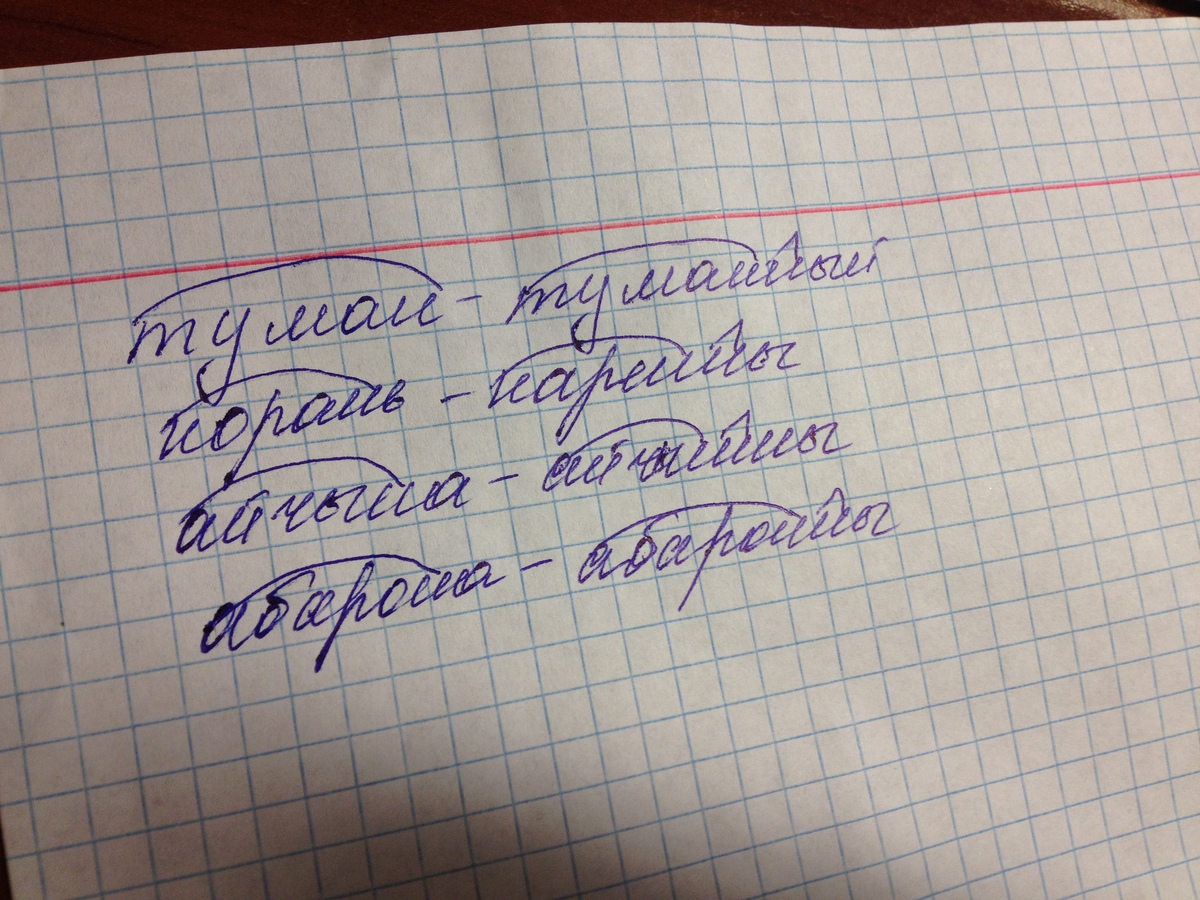 туман - туманный
корань - каренны
айчына - айчынны
абарона - абаронны